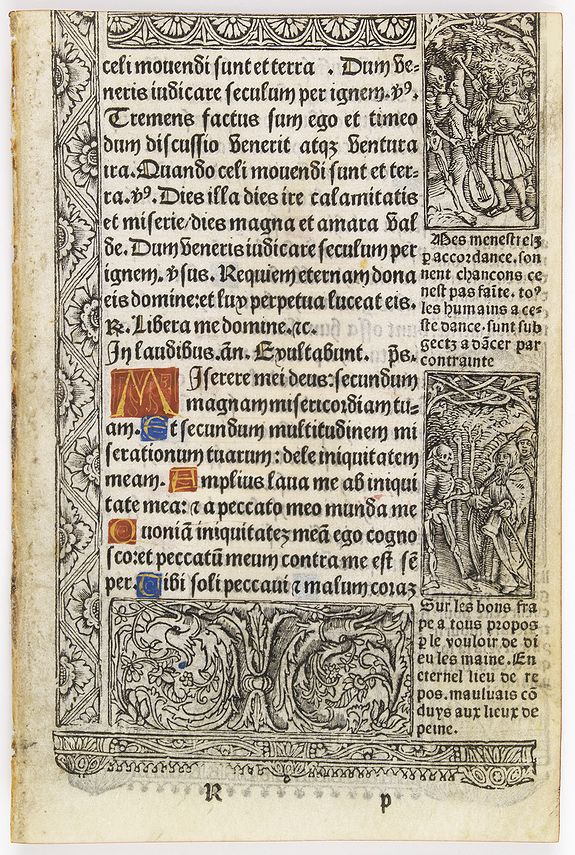 celi mouendi sunt et terra . Dum ve-
neris iudicare seculum per ignem. v⁹.
Tremens factus sum ego et timeo
dum discussio venerit atqz ventura
ira. Quando celi mouendi sunt et ter-
ra. v⁹. Dies illa dies ire calamitatis
et miserie/dies magna et amara val
de. Dum veneris iudicare seculum per
ignem. v sus. Requiem eternam dona
eis domine: et lux perpetua luceat eis.
℟. Libera me domine. ⁊c.
In laudibus. an̄. Exultabunt. p̄s.
MIserere mei deus: secundum
magnam misericordiam tu-
am. Et secundum multitudinem mi
serationum tuarum: dele iniquitatem
meam. Amplius laua me ab iniqui
tate mea: ⁊ a peccato meo munda me
Quoniā iniquitatez meā ego cogno
sco: et peccatū meum contra me est sē
per. Tibi soli peccaui ⁊ malum coraz
Mes menestrelz
ꝑ accordance. son
nent chancons. ce
nest pas faīte. to⁹
les humains a ce-
ste dance. sunt sub
gectz a dācer par
contrainte
Sur les bons fra
pe a tous propos
ꝑ le vouloir de di
eu les maine. En
eternel lieu de re
pos. mauluais cō
duys aux lieux de
peine.
R p